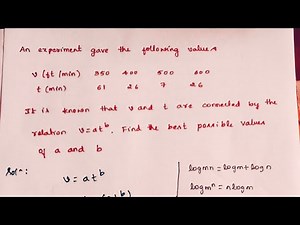 An experiment gave the following values
v (ft/min) 350 400 500 600
t (min) 61 26 7 26
It is known that v and t are connected by the
relation v=at^b. Find the best possible values
of a and b
Soln:
v = at^b
log mn = log m + log n
log m^n = n log m